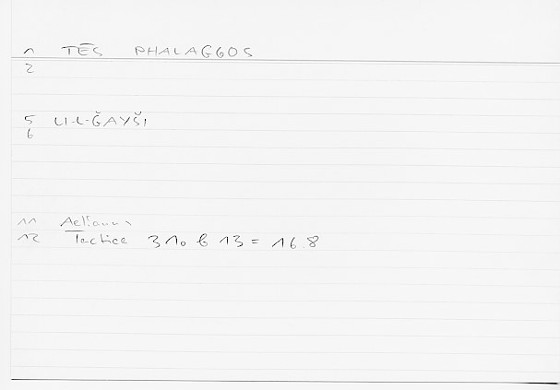 1 TĒS PHALAGGOS
2
5 LI-L-ĞAYŠI
6
11 Aelianus
12 Tactica 310 b 13 = 16.8